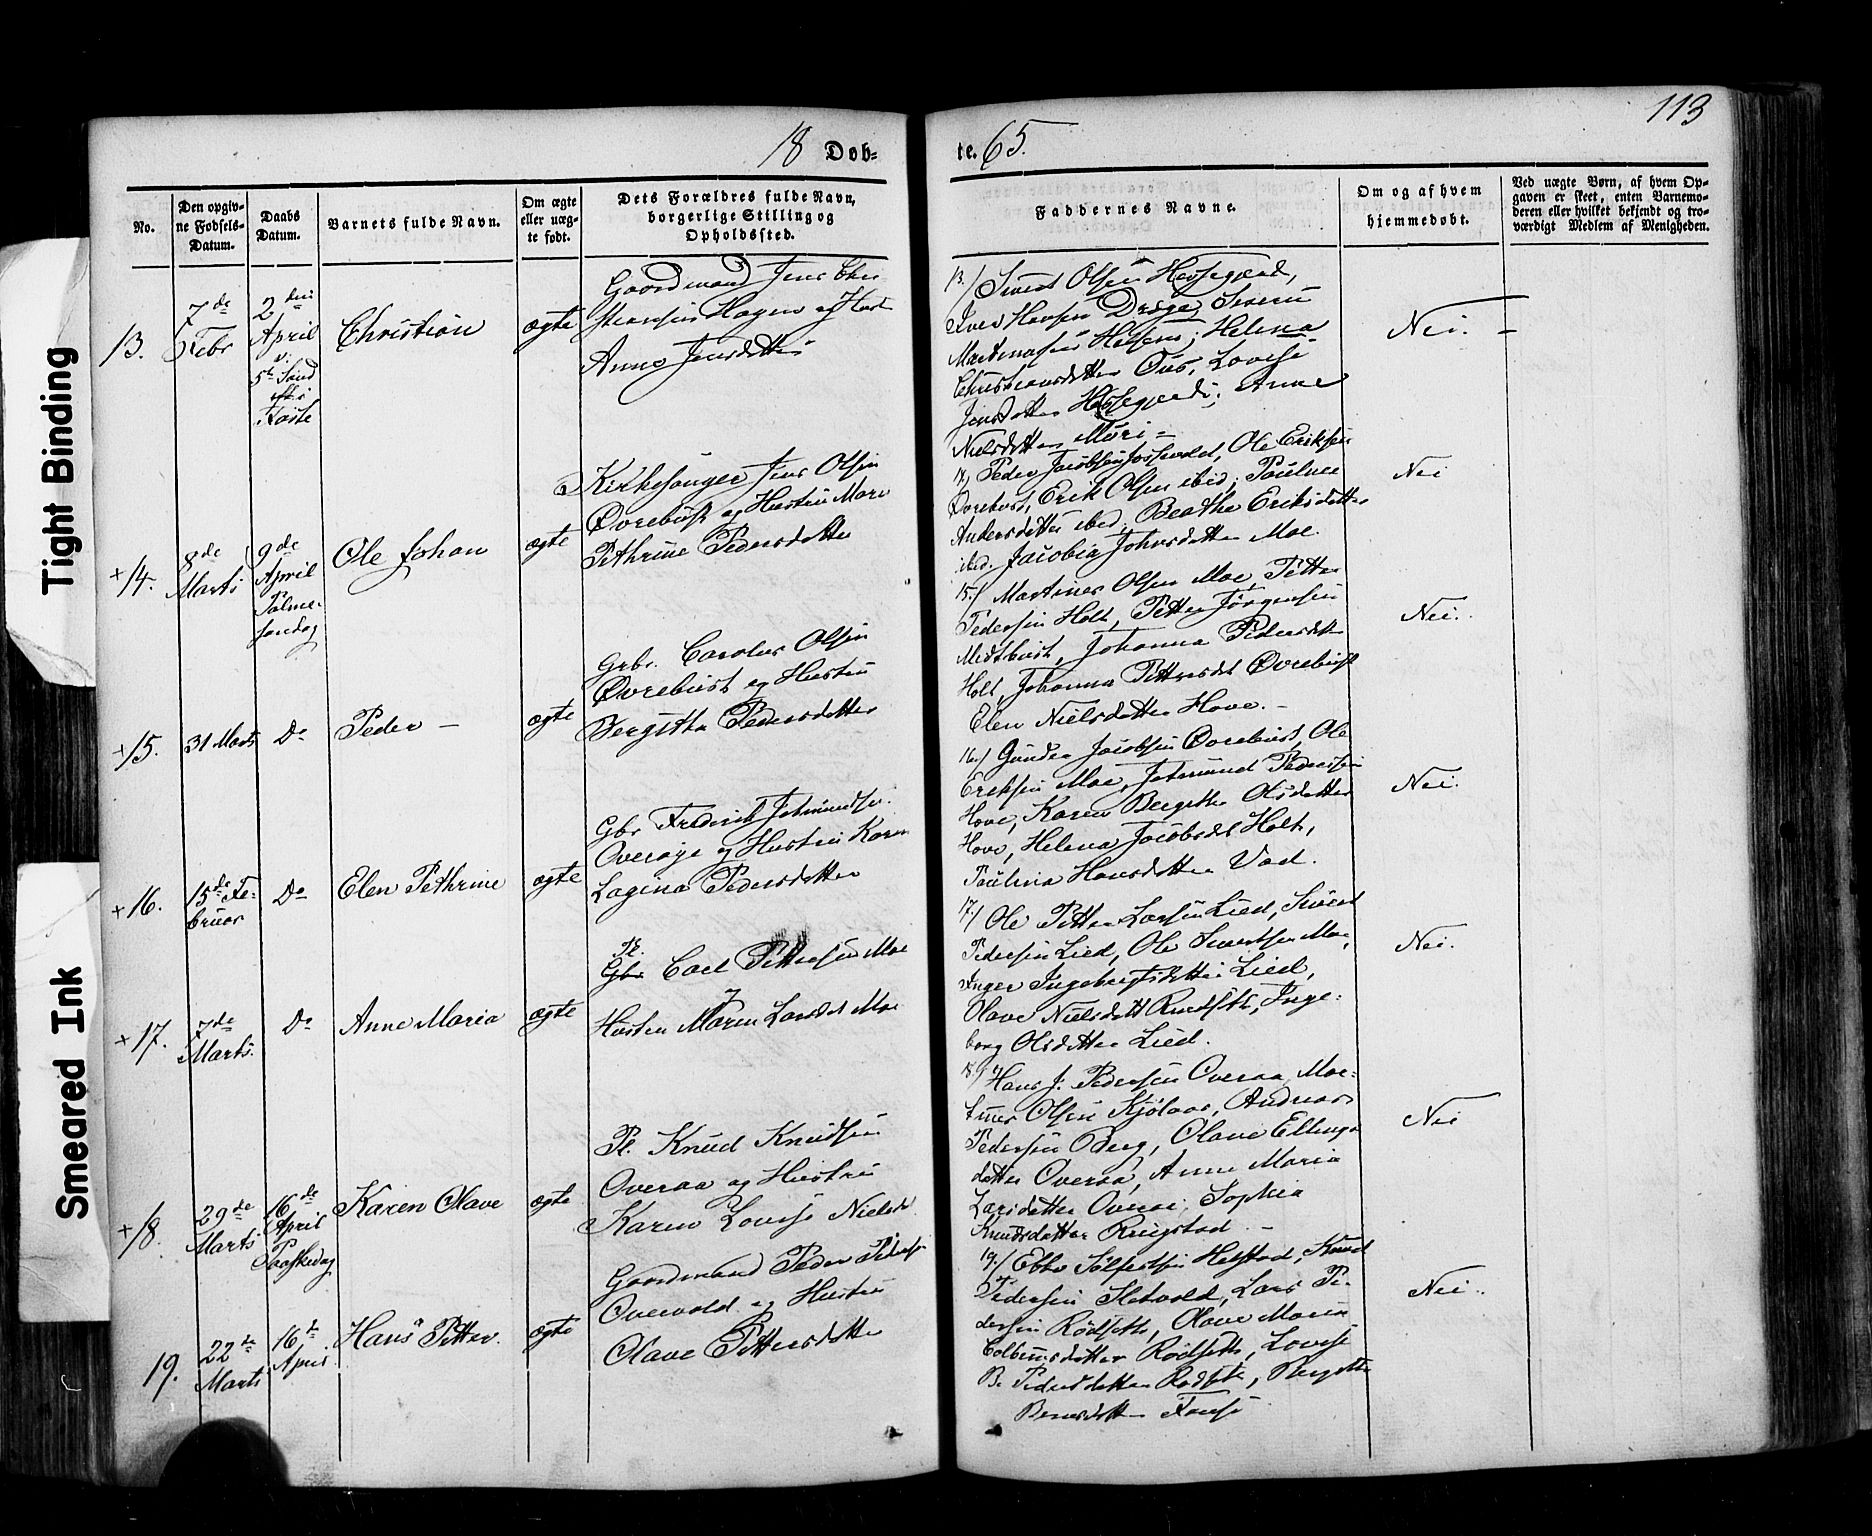 113
18 Dob=
te. 65.
No.
Den opgiv-
ne Fødsels-
Datum.
Daabs
Datum.
Barnets fulde Navn.
Om ægte
eller uæg-
te født.
Dets Forældres fulde Navn,
borgerlige Stilling og
Opholdssted.
Faddernes Navne.
Om og af hvem
hjemmedøbt.
Ved uægte Børn, af hvem Op-
gaven er skeet, enten Barnemo-
deren eller hvilket bekjendt og tro-
værdigt Medlem af Menigheden.
13.
7de
Febr
2den
April
5te Sønd
i
Faste
Christian
ægte
Gaardmand Jens Chri
stensen Hagen og Hust
Anne Jensdatter
13/ Sivert Olsen
Iver Hansen Drage,
Helena
Lovise
Jensdatter Anne
Nielsdatter
Nei. -
+14.
8de
Marts
9de
April
Palme-
søndag
Ole Johan
ægte
Kirkesanger Jens Olsen
Øvrebust og Hustru Mare
Pethrine Pedersdatter
Peder Jacobsen Ole Eriksen
Erik Olsen ibid; Pauline
Andersdatter ibid; Beathe Eriksdatter
ibid. Jacobia Johnsdatter Moe.
Nei
+15.
31 Marts
Do
Peder -
ægte
Gbr. Carolus Olsen
Øvrebust og Hustru
Bergitha Pedersdatter
15/ Martinus Olsen Moe, Petter
Pedersen Holt, Petter Jørgensen
Midtbust, Johanna Pedersdtr
Holt, Johanna Pettersdt Øvrebust
Elen Nielsdatter Hove. -
Nei.
+16.
15de Fe-
bruar
Do
Elen Pethrine
ægte
Gbr Frederik
og Hustru Karen
Lagina Pedersdatter
16/ Gunder Jacobsen Øvrebust, Ole
Eriksen Moe, Pedersen
Hove, Karen Bergitha Olsdatter
Hove, Helena Jacobsdt Holt,
Paulina Hansdatter Vad.
Nei.
+17.
7de
Marts.
Do
Anne Maria
ægte
Pl.
Gbr Carl Pettersen Moe
Hustru Maren Larsdt Moe
17/ Ole Petter Larsen Lied, Sivert
Pedersen Lied, Ole Sivertsen Moe,
Inger Ingebrigtsdatter Lied,
Olave Nielsdatt Inge-
borg Olsdatter Lied.
Nei.
+18.
29de
Marts
16de
April
Paaskedag
Karen Olave
ægte
Pl. Knud Knudsen
Overaa og Hustru
Karen Lovise Nielsd.
18/ Hans J. Pedersen Overaa, Mar-
tinus Olsen Andreas
Pedersen Berg, Olave Ellings
datter Overaa, Anne Maria
Larsdatter Overaa, Sophia
Knudsdatter Ringstad. -
Nei
19.
22de
Marts
16de
April
Hans Petter.
ægte
Gaardmand Peder Peders
Overvold og Hustru
Olave Pettersdatter
19/ Ebbe Helstad, Knud
Pedersen Lars Pe-
dersen Rødseth, Olave Maria
Rødseth, Lovise
B. Pedersdatter Rødseth, Bergitte
Berntsdatter
Nei.
Tight Binding
Smeared Ink